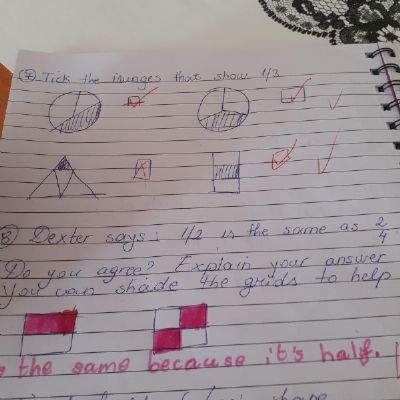 7 Tick the images that show 1/3
8 Dexter says: 1/2 is the same as 2/4
Do you agree? Explain your answer
You can shade the grids to help
the same because it's half.
shape